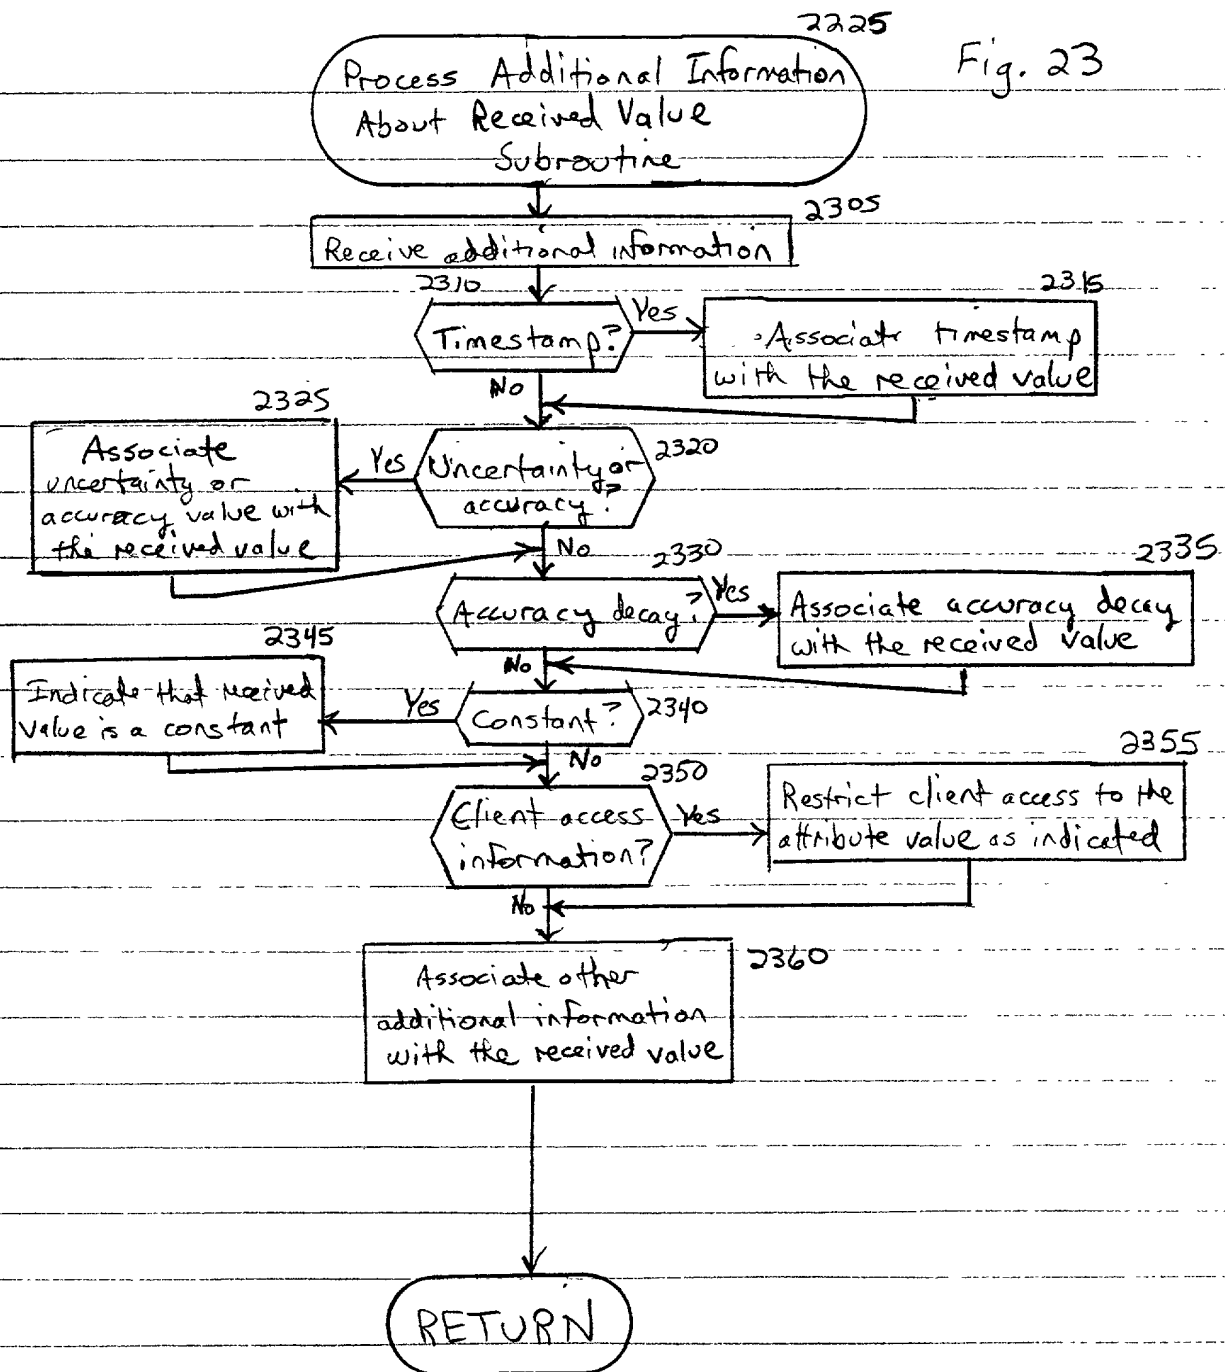 2225
Fig. 23
Process Additional Information
About Received Value
Subroutine
2305
Receive additional information
2310
Timestamp?
Yes
2315
Associate timestamp
with the received value
No
2325
Associate
uncertainty or
accuracy value with
the received value
Yes
2320
Uncertainty or
accuracy?
No
2330
Accuracy decay?
Yes
2335
Associate accuracy decay
with the received value
No
2345
Indicate that received
value is a constant
Yes
Constant?
2340
No
2350
Client access
information?
Yes
2355
Restrict client access to the
attribute value as indicated
No
2360
Associate other
additional information
with the received value
RETURN